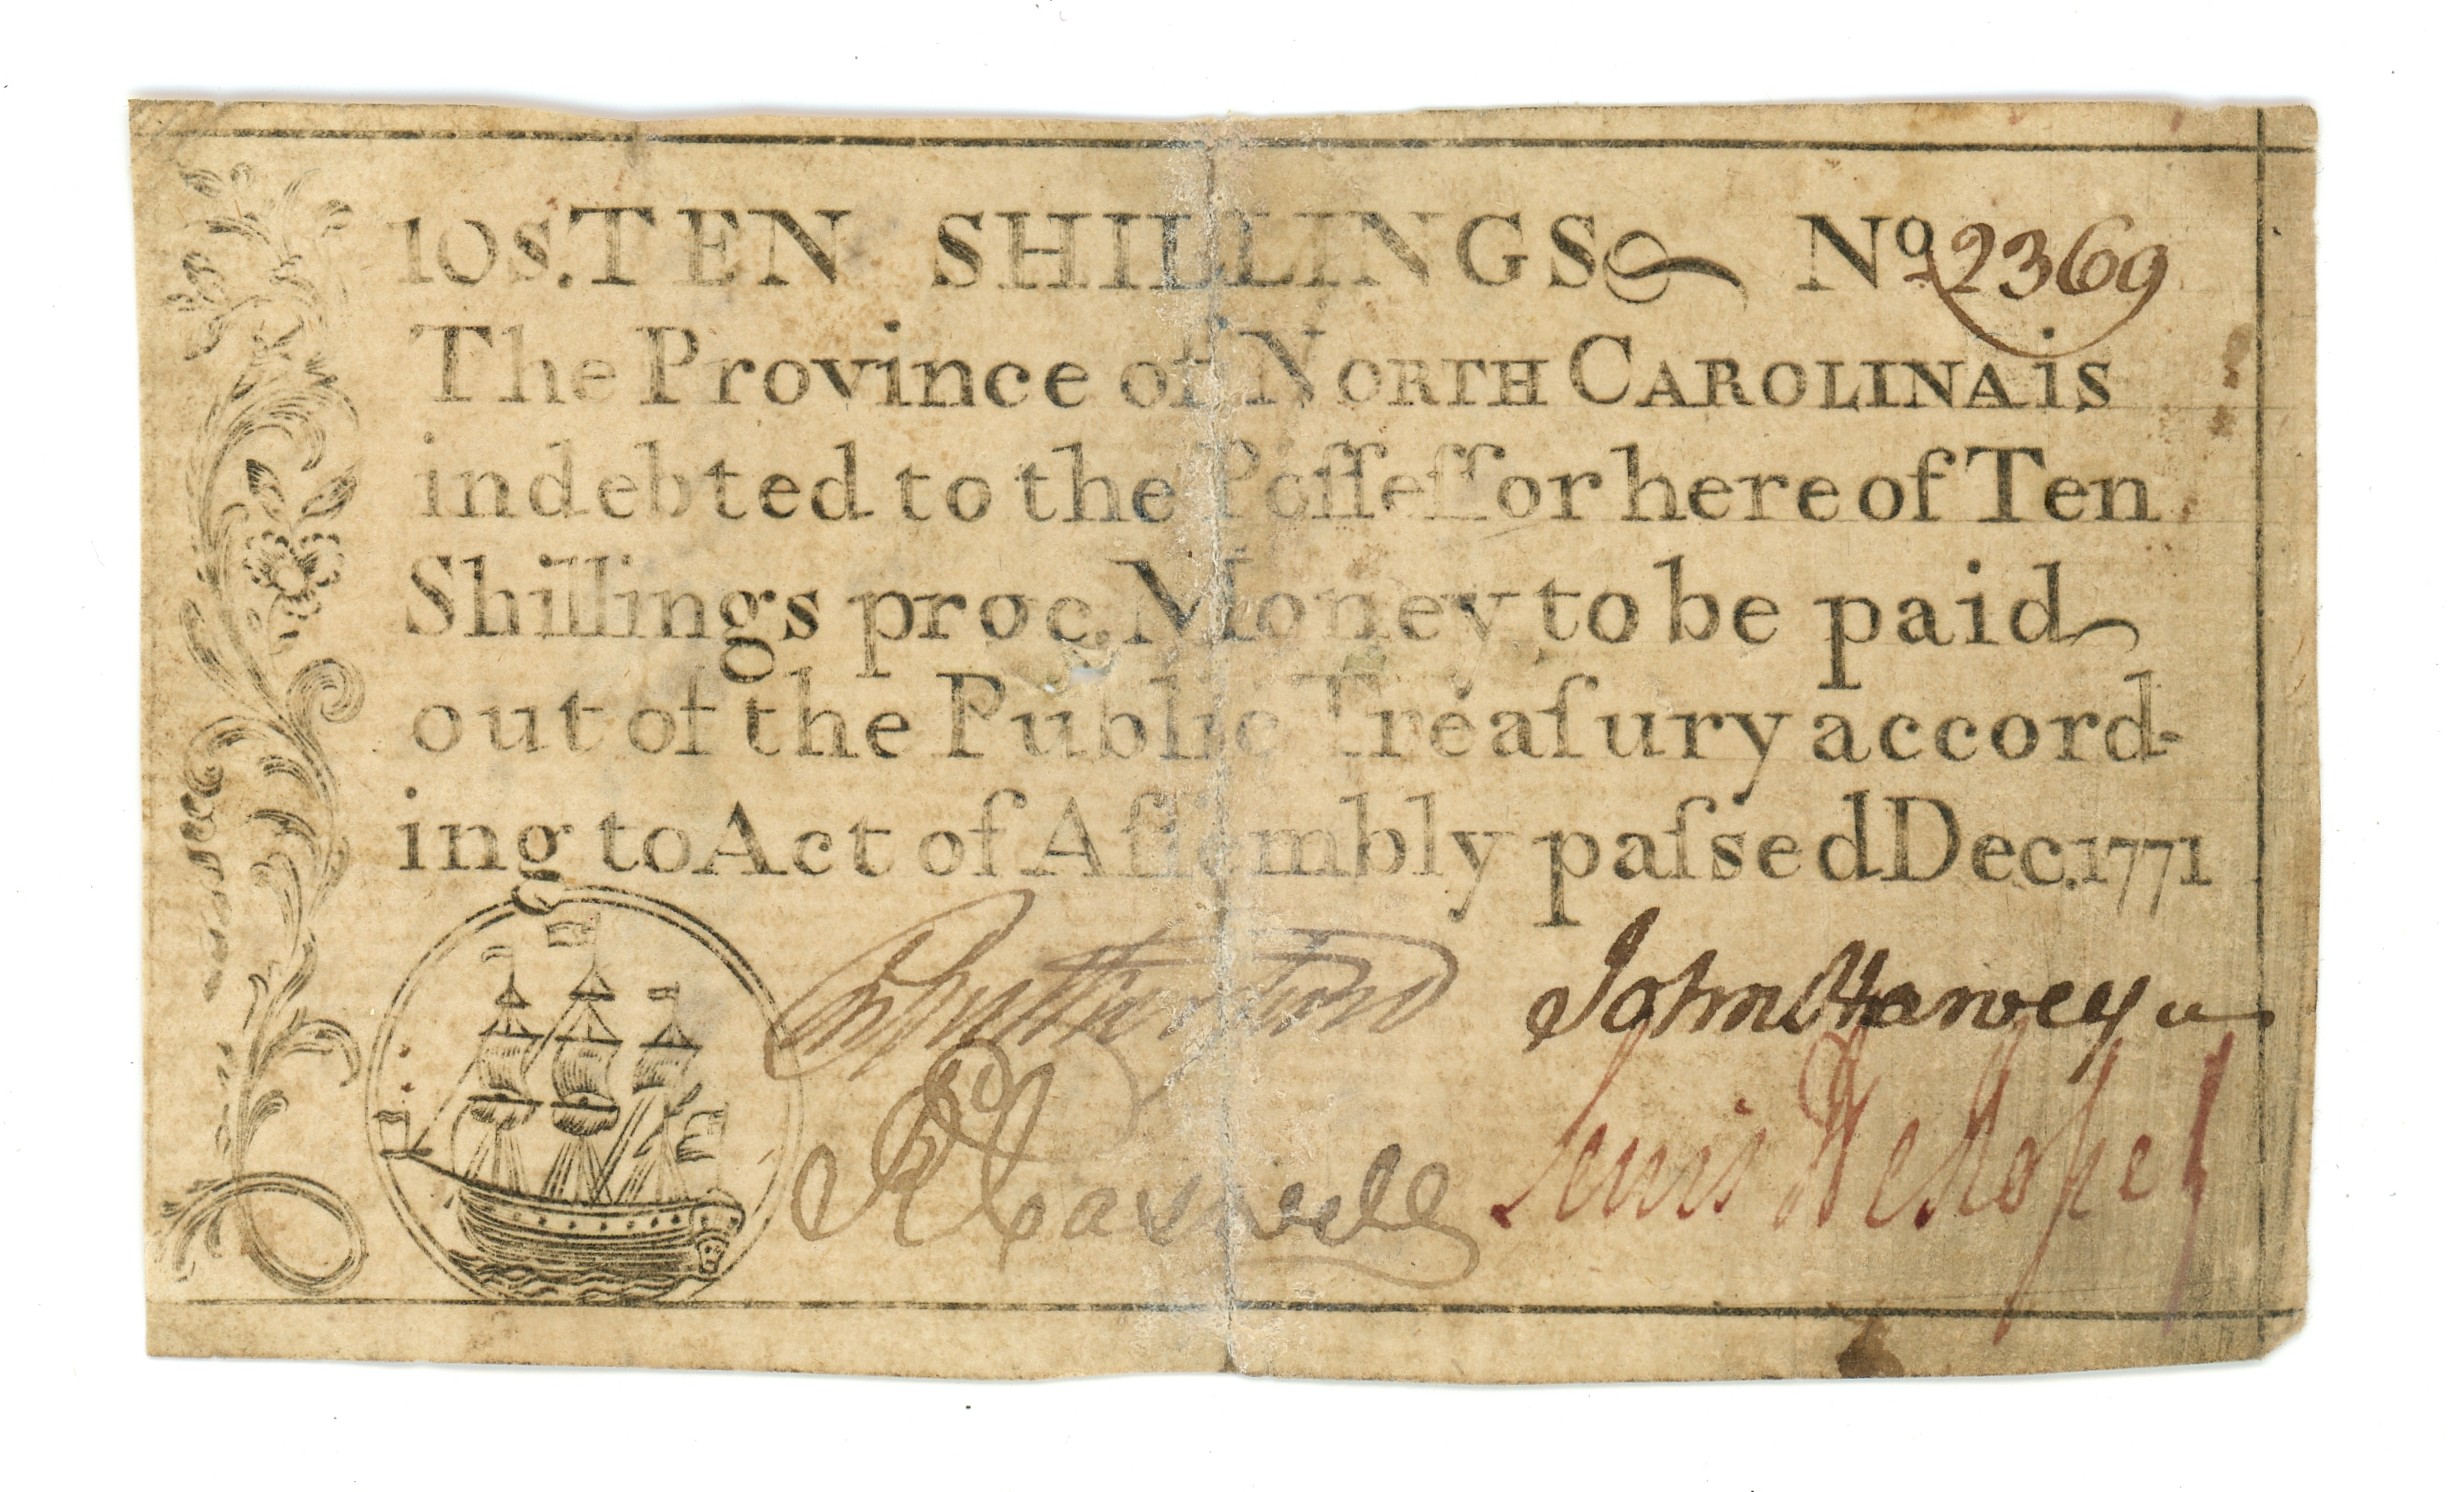 10s. TEN SHILLINGS No 2369
The Province of NORTH CAROLINA is
indebted to the Poſſeſſor here of Ten
Shillings proc. Money to be paid
out of the Public Treaſury accord-
ing to Act of Aſſembly paſsed Dec. 1771
John Harvey
Rd Caswell Lewis